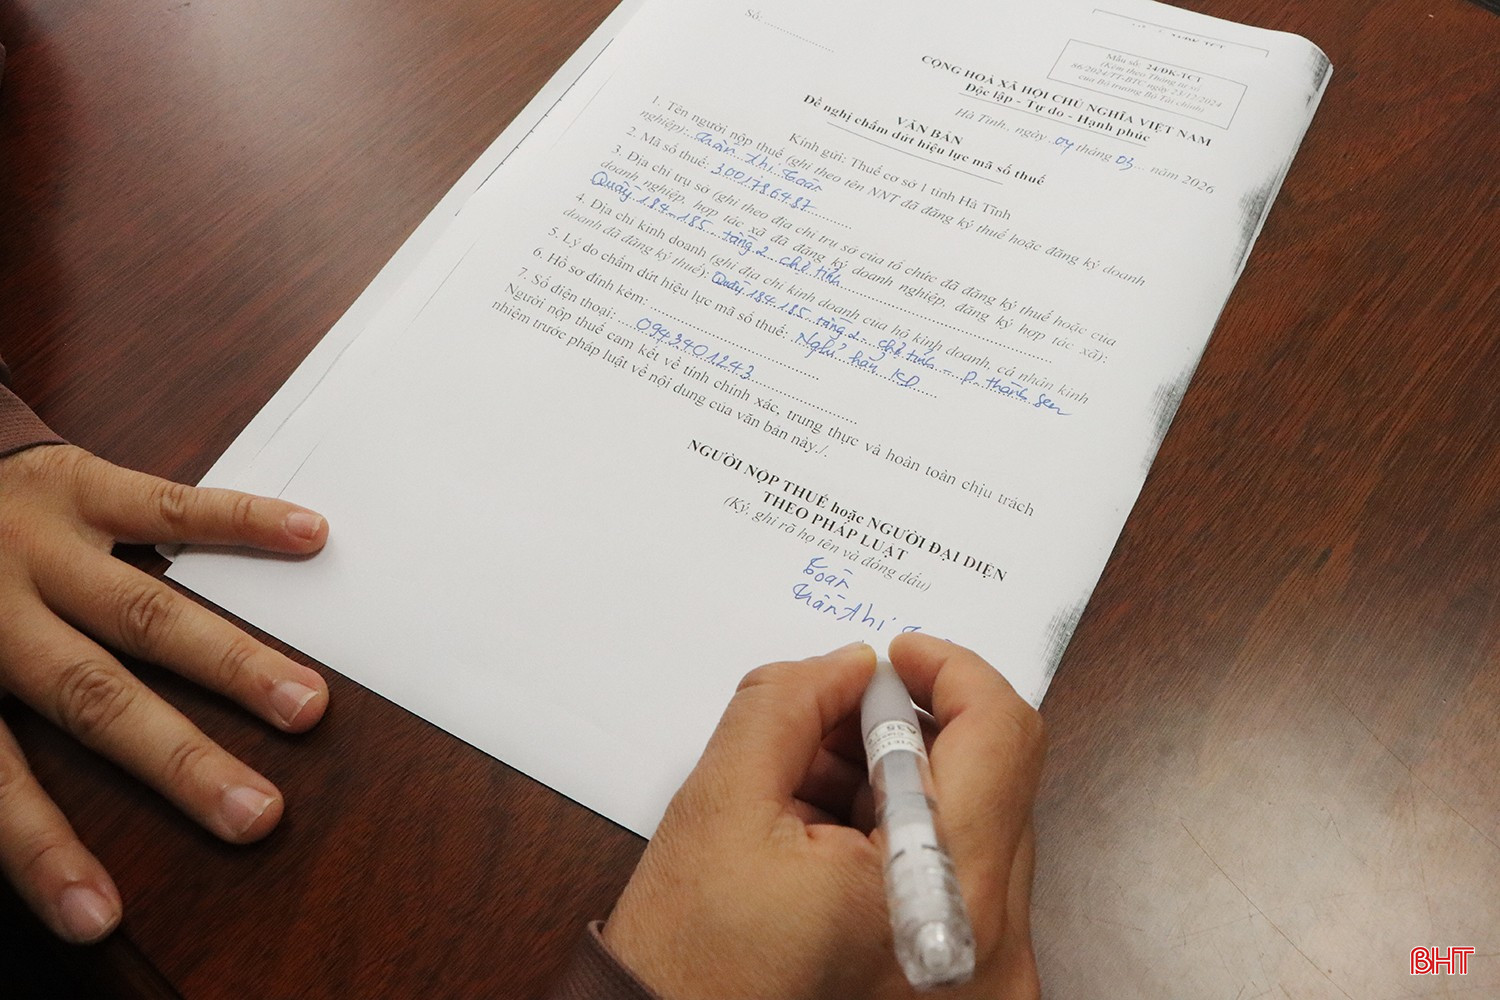 Số: ....................
Mẫu số: 24/ĐK-TCT
(Kèm theo Thông tư số
86/2024/TT-BTC ngày 23/12/2024
của Bộ trưởng Bộ Tài chính)
CỘNG HOÀ XÃ HỘI CHỦ NGHĨA VIỆT NAM
Độc lập - Tự do - Hạnh phúc
Hà Tĩnh, ngày 04 tháng 03 năm 2026
VĂN BẢN
Đề nghị chấm dứt hiệu lực mã số thuế
Kính gửi: Thuế cơ sở 1 tỉnh Hà Tĩnh
1. Tên người nộp thuế (ghi theo tên NNT đã đăng ký thuế hoặc đăng ký doanh
nghiệp): Trần Thị Toàn
2. Mã số thuế: 3001786487
3. Địa chỉ trụ sở (ghi theo địa chỉ trụ sở của tổ chức đã đăng ký thuế hoặc của
doanh nghiệp, hợp tác xã đã đăng ký doanh nghiệp, đăng ký hợp tác xã):
Quầy 184-185 tầng 2 chợ tỉnh
4. Địa chỉ kinh doanh (ghi địa chỉ kinh doanh của hộ kinh doanh, cá nhân kinh
doanh đã đăng ký thuế): Quầy 184 185 tầng 2 - chợ tỉnh - P. Thành Sen
5. Lý do chấm dứt hiệu lực mã số thuế: Nghỉ hẳn KD
6. Hồ sơ đính kèm: ....................
7. Số điện thoại: 0943401243
Người nộp thuế cam kết về tính chính xác, trung thực và hoàn toàn chịu trách
nhiệm trước pháp luật về nội dung của văn bản này./.
NGƯỜI NỘP THUẾ hoặc NGƯỜI ĐẠI DIỆN
THEO PHÁP LUẬT
(Ký, ghi rõ họ tên và đóng dấu)
Toàn
Trần Thị
BHT